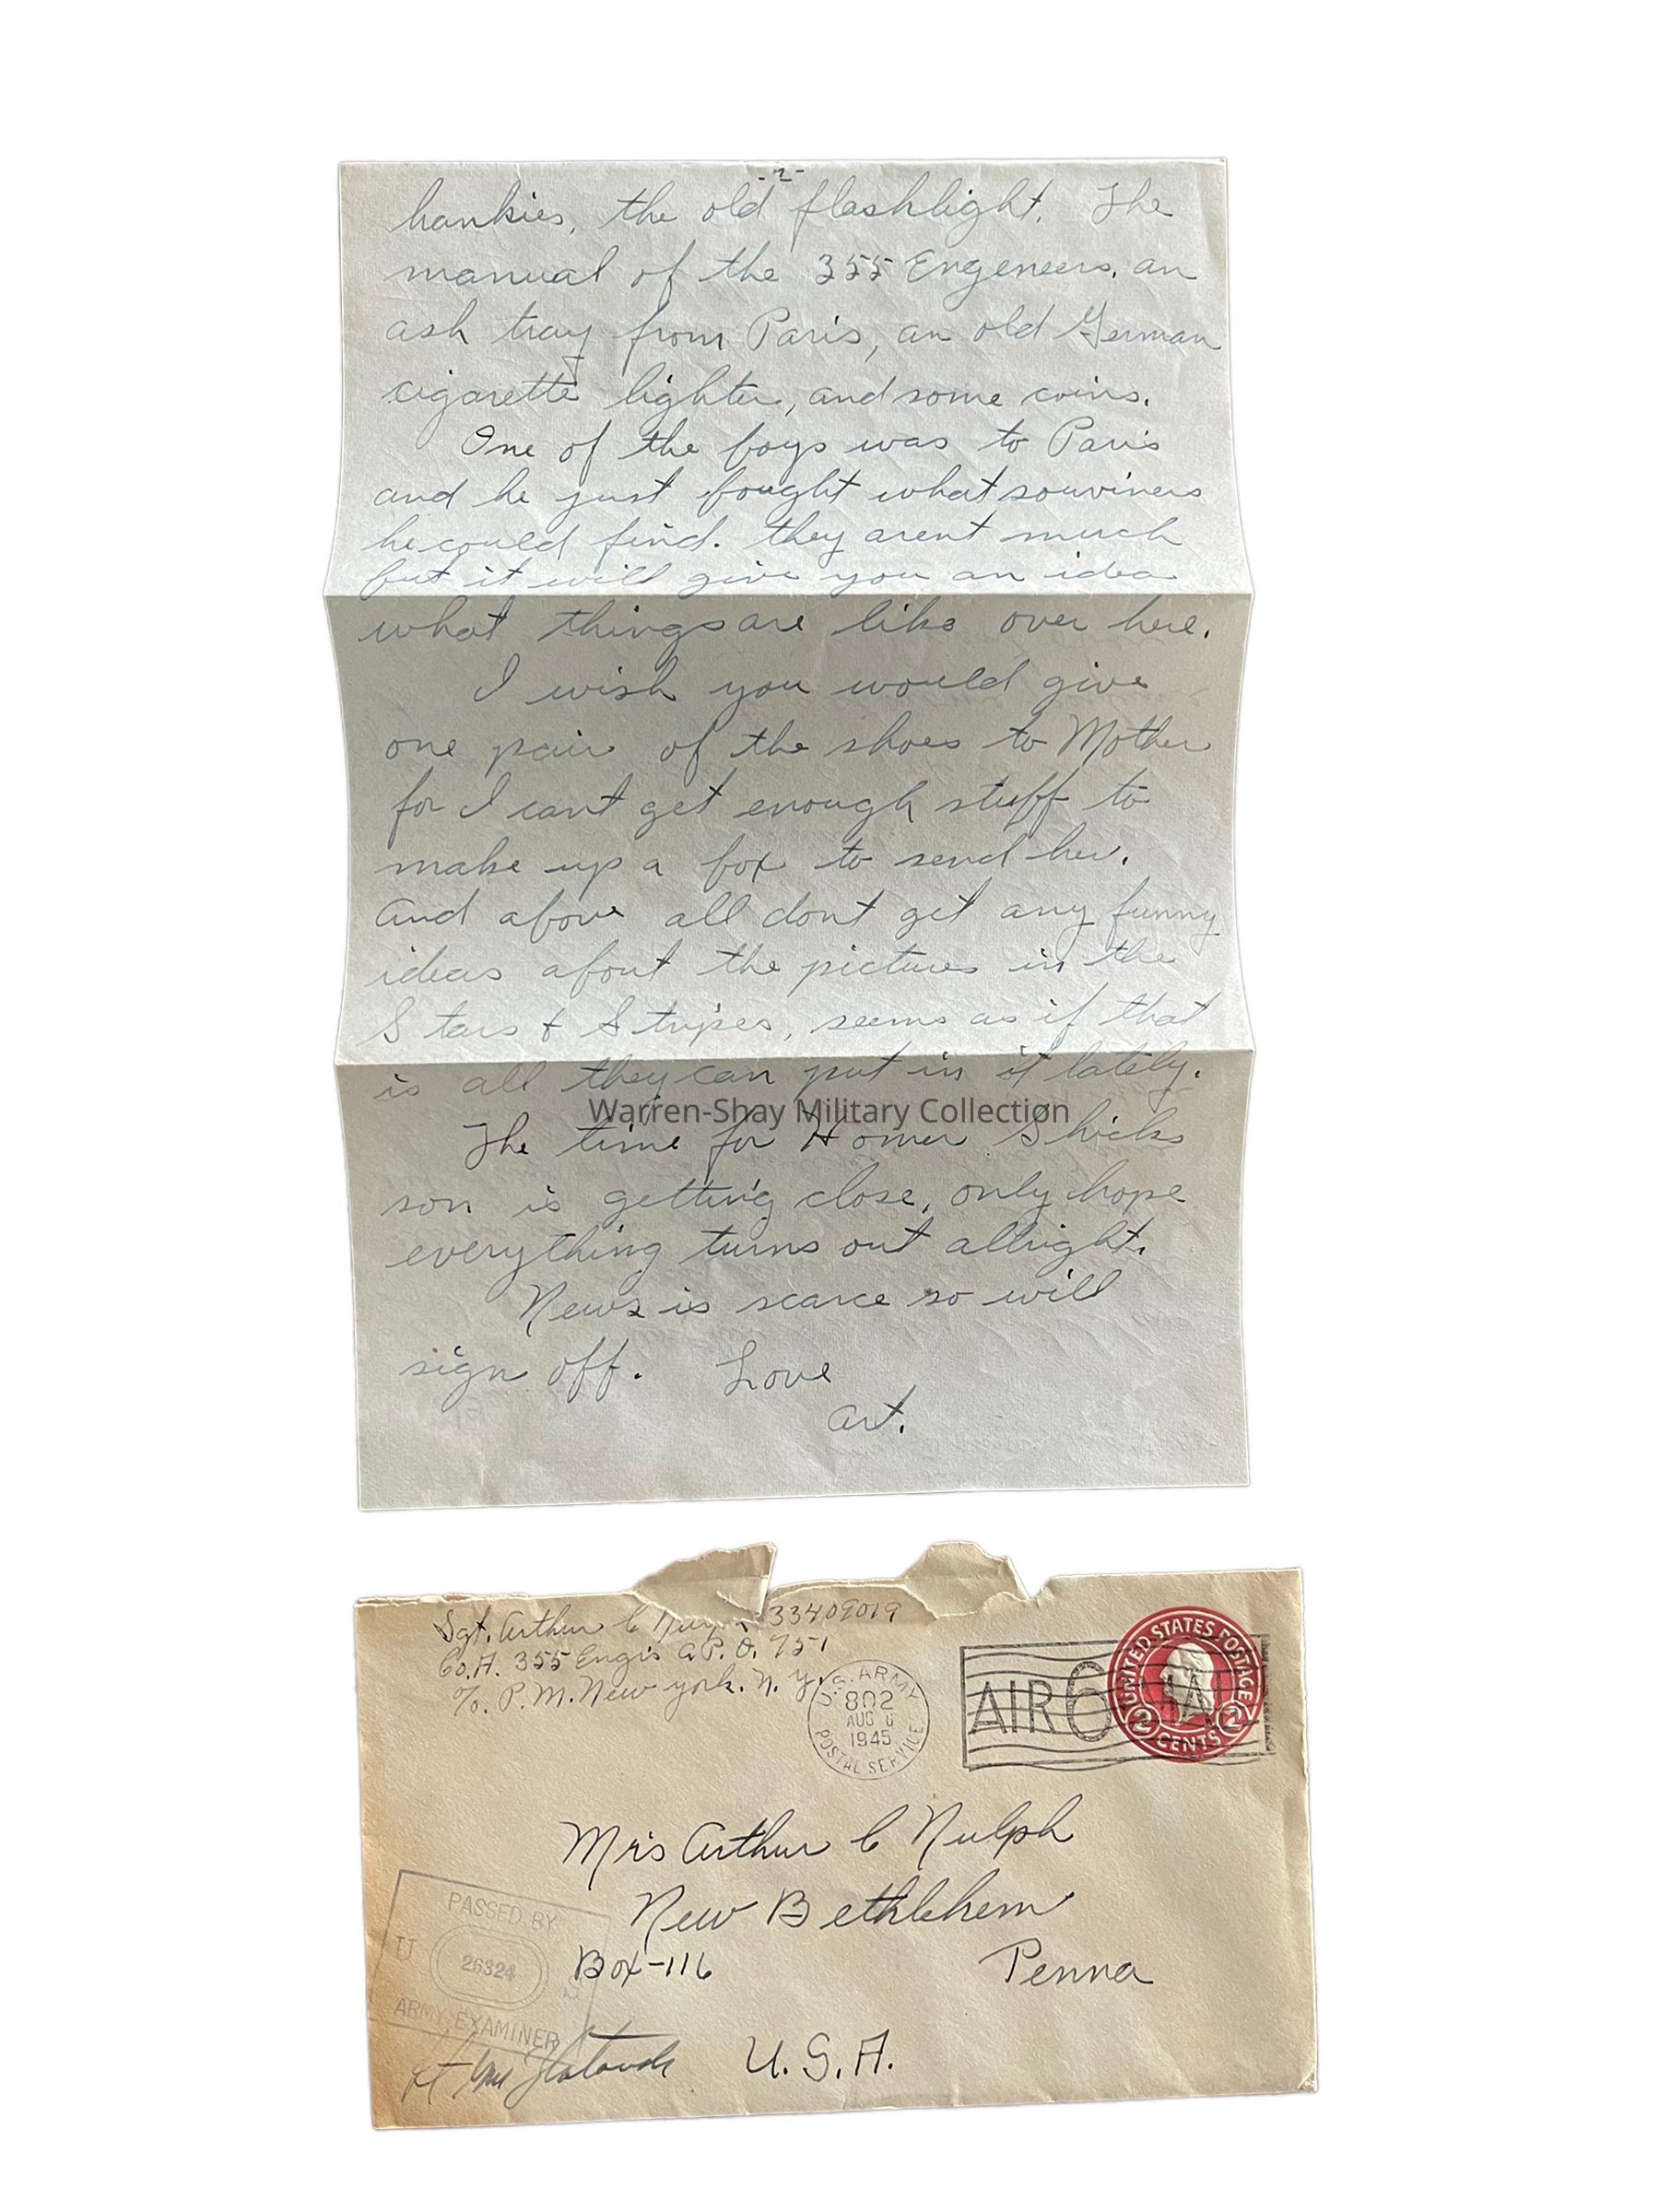 -2-
hankies, the old flashlight. The
manual of the 355 Engeneers, an
ash tray from Paris, an old German
cigarette lighter, and some coins.
One of the boys was to Paris
and he just bought what souviners
he could find. they arent much
but it will give you an idea
what things are like over here.
I wish you would give
one pair of the shoes to Mother
for I cant get enough stuff to
make up a box to send her.
And above all dont get any funny
ideas about the pictures in the
Stars & Stripes, seems as if that
is all they can put in it lately.
Warren-Shay Military Collection
The time for Homer Shicks
son is getting close, only hope
everything turns out allright.
News is scarce so will
sign off. Love
Art.
Sgt. Arthur C Nulph 33409019
Co. A. 355 Engrs A.P.O. 751
%. P.M. New york. N. Y.
U.S. ARMY
802
AUG 6
1945
POSTAL SERVICE
AIR 6
UNITED STATES POSTAGE
2 CENTS 2
Mrs Arthur C Nulph
New Bethlehem
Box-116 Penna
U.S.A.
PASSED BY
26324
ARMY EXAMINER